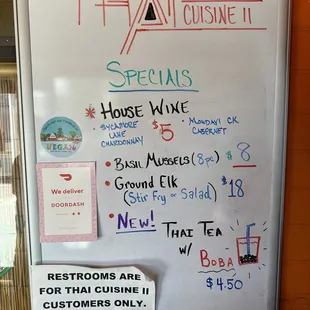 THAI
CUISINE II
SPECIALS
* HOUSE WINE
• SYCAMORE LANE CHARDONNAY
$5
• MONDAVI CK CABERNET
• BASIL MUSSELS (8pc) $8
• GROUND ELK $18
(STIR FRY or SALAD)
• NEW! THAI TEA
W/ BOBA
$4.50
VEGAN
We deliver
DOORDASH
RESTROOMS ARE
FOR THAI CUISINE II
CUSTOMERS ONLY.